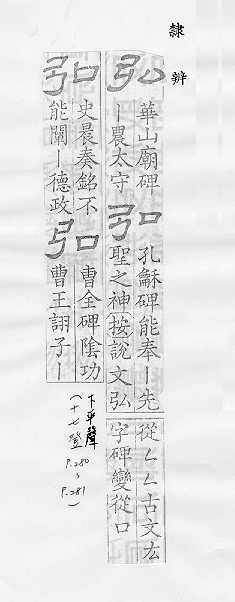 隸辨
弘
華山廟碑
｜農太守
弘
孔龢碑能奉｜先
聖之神按說文弘
從厶厶古文厷
字碑變從口
弘
史晨奏銘不
能闡｜德政
弘
曹全碑陰功
曹王詡子｜
下平聲
(十七登
P.280
~
P.281)